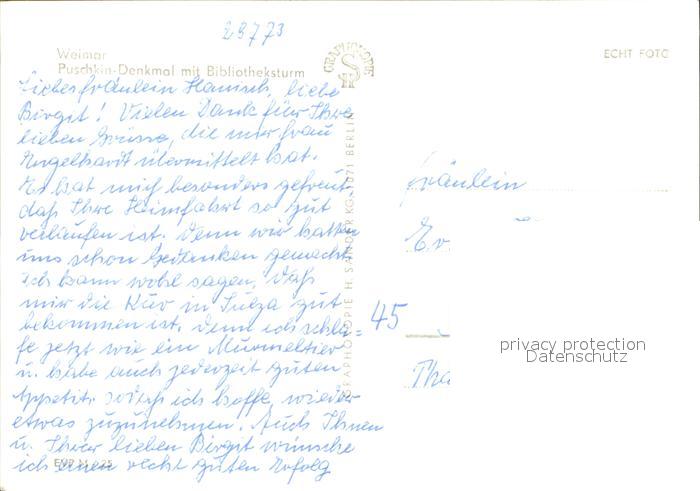 28773
Weimar
Puschkin-Denkmal mit Bibliotheksturm
GRAPHOKOPIE
HS
ECHT FOTO
Liebes Fräulein Hanisch, liebe
Birgit! Vielen Dank für Ihre
lieben Grüsse, die mir Frau
Engelhardt übermittelt hat.
Es hat mich besonders gefreut,
daß Ihre Heimfahrt so gut
verlaufen ist. Denn wir hatten
uns schon Gedanken gemacht.
Ich kann wohl sagen, daß
mir die Kur in Sulza gut
bekommen ist, denn ich schla=
fe jetzt wie ein Murmeltier
u. habe auch jederzeit guten
Appetit, sodaß ich hoffe, wieder
etwas zuzunehmen. Auch Ihnen
u. Ihrer lieben Birgit wünsche
ich einen recht guten Erfolg
GRAPHOKOPIE H. SANDER KG • 1071 BERLIN
Fräulein
45
privacy protection
Datenschutz